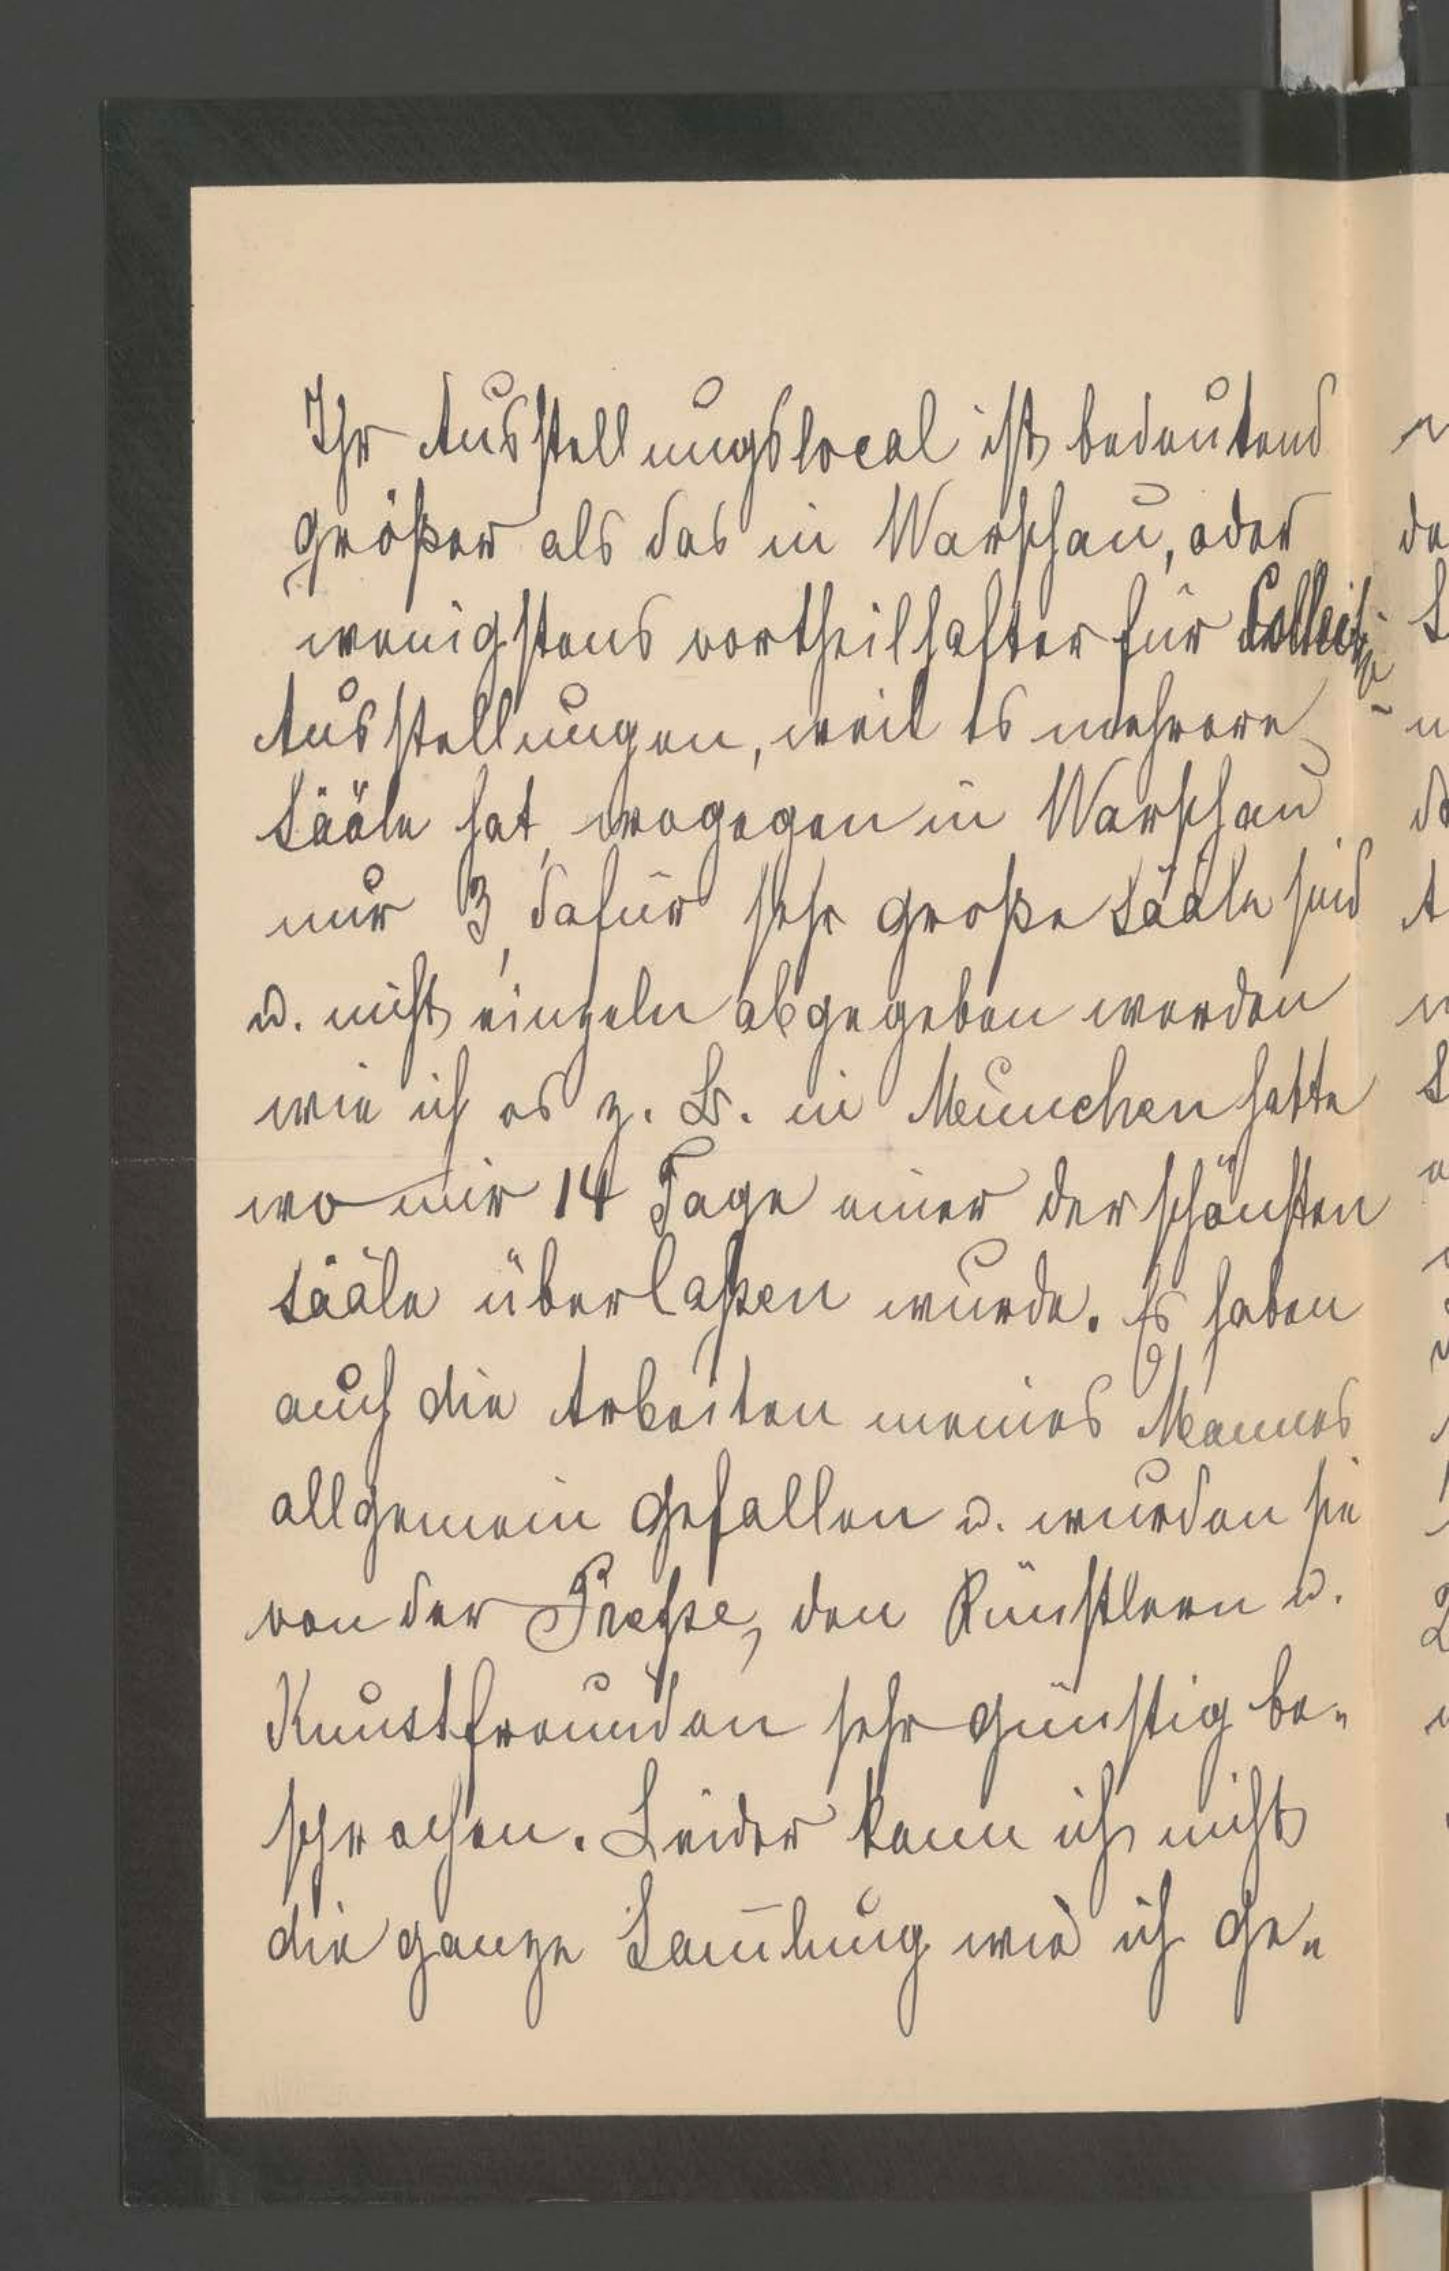 Ihr Ausstellungslocal ist bedeutend
größer als das in Warschau, oder
wenigstens vortheilhafter für
Ausstellungen, weil es mehrere
Sääle hat, wogegen in Warschau
nur 3, dafür sehr große Sääle sind
u. nicht einzeln abgegeben werden
wie ich es z. B. in München hatte
wo mir 14 Tage einer der schönsten
Sääle überlaßen wurde. Es haben
auch die Arbeiten meines Mannes
allgemein gefallen u. wurden sie
von der Preße, den Künstlern u.
Kunstfreunden sehr günstig be-
sprochen. Leider kann ich nicht
die ganze Sam̅lung wie ich ge-